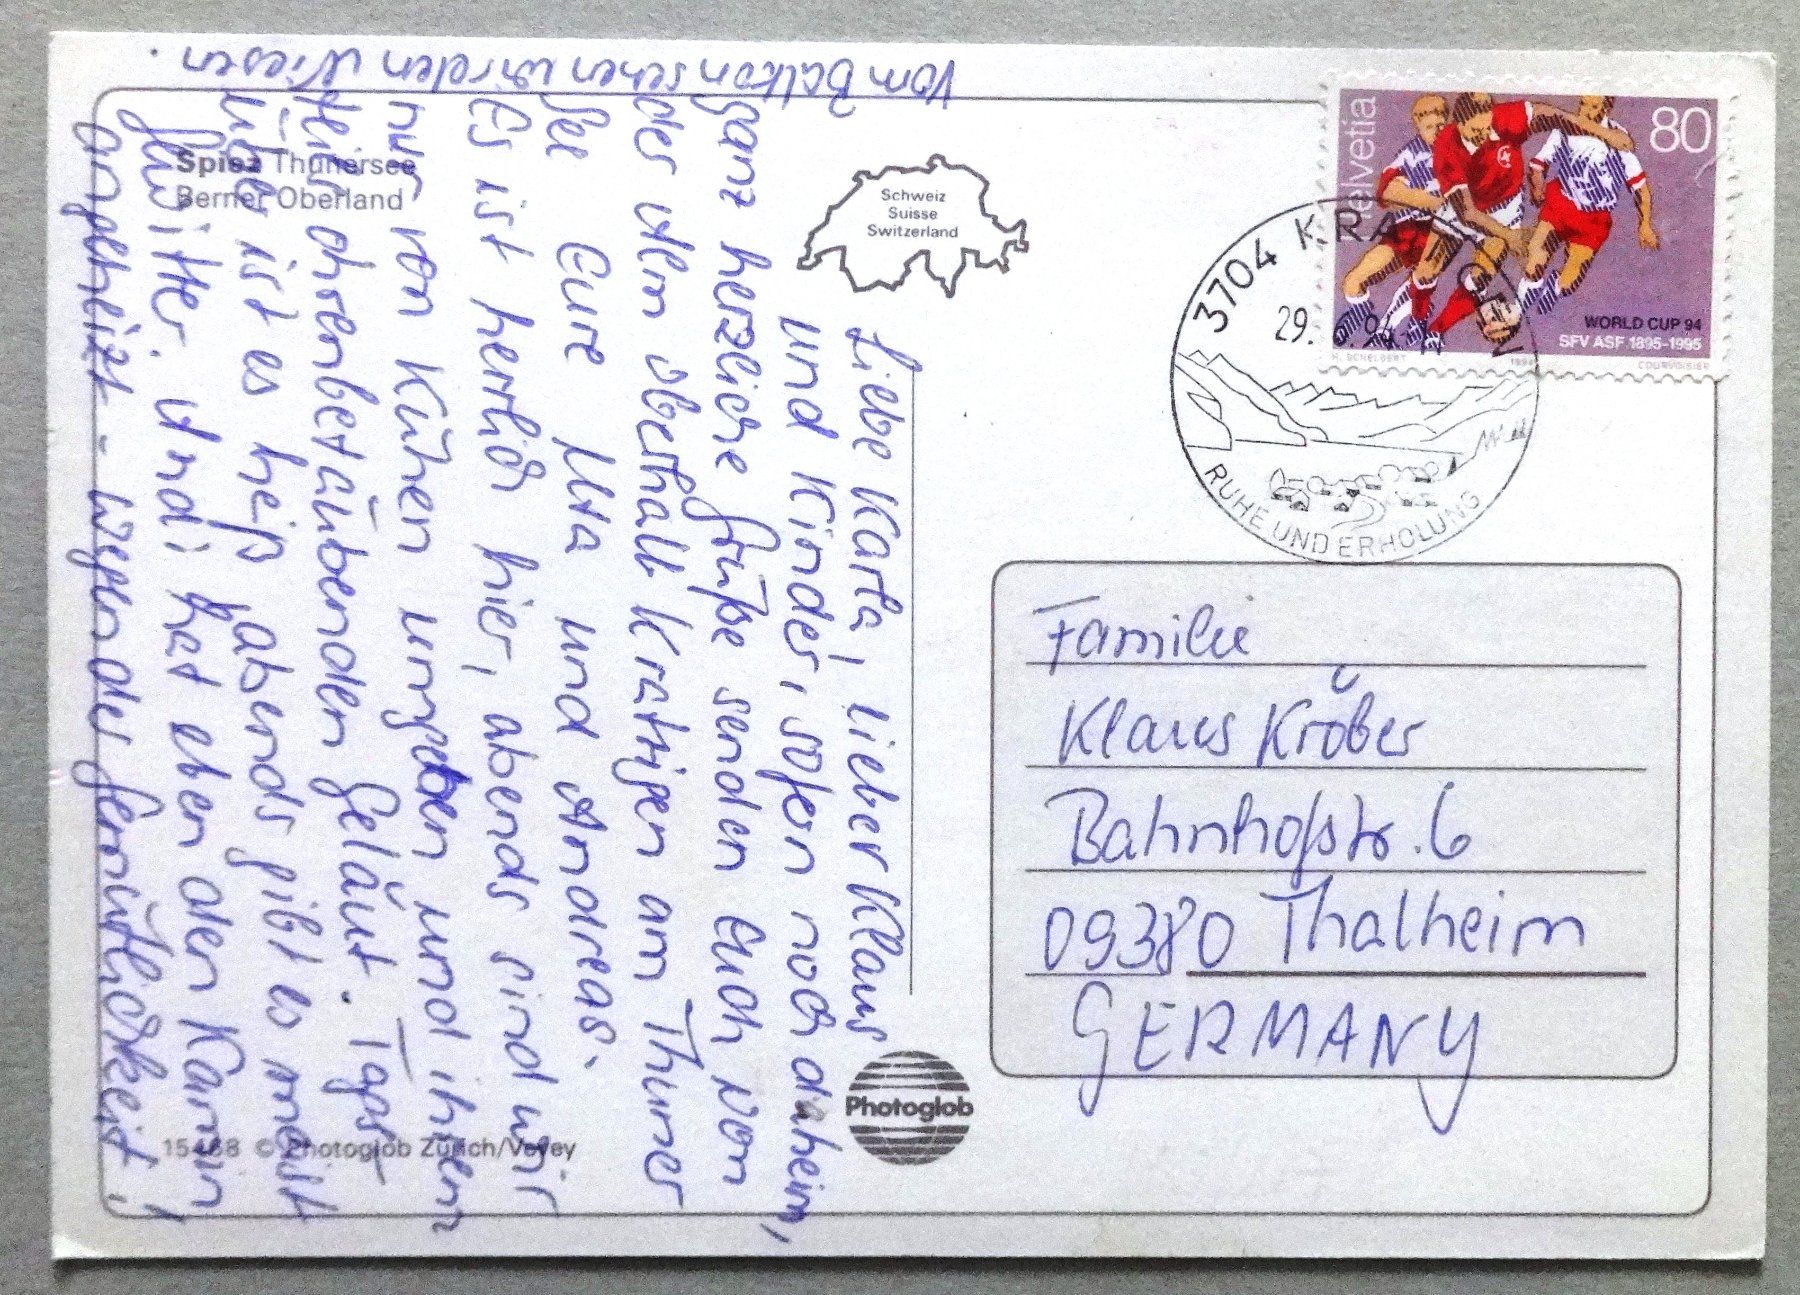 Spiez Thunersee
Berner Oberland
Schweiz
Suisse
Switzerland
Helvetia
80
WORLD CUP 94
SFV ASF 1895-1995
H. SCHELBERT
1994
COURVOISIER
3704 KRATTIGEN
29. 6. 94
RUHE UND ERHOLUNG
Liebe Karla, lieber Klaus
und Kinder, sofern noch daheim,
ganz herzliche Grüße senden Euch von
der Alm oberhalb Krattigen am Thuner
See Eure Uta und Andreas.
Es ist herrlich hier, abends sind wir
nur von Kühen umgeben und ihrem
ohrenbetäubenden Geläut. Tags
über ist es heiß abends gibt es meist
Gewitter. Andi hat eben den Kamin
angeheizt - wegen der Gemütlichkeit!
Vom Balkon sehen wir den Niesen.
Familie
Klaus Kröber
Bahnhofstr. 6
09380 Thalheim
GERMANY
Photoglob
© Photoglob Zürich/Vevey